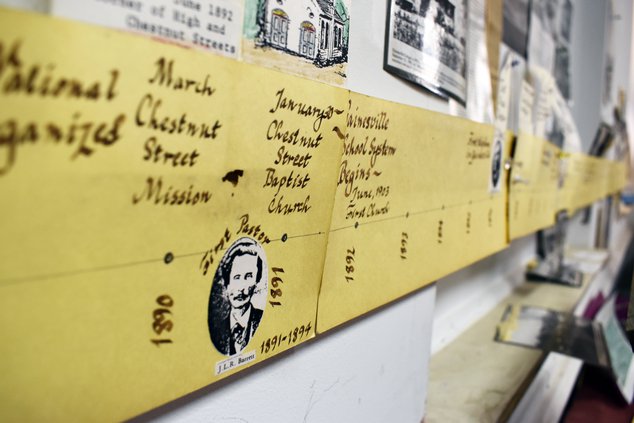 June 1892
corner of High and
Chestnut Streets
National
rganized
March
Chestnut
Street
Mission
January 30
Chestnut
Street
Baptist
Church
Gainesville
School System
Begins~
June, 1903
First Church
First Pastor
1890
1891
1892
1893
J.L.R. Barrett
1891-1894